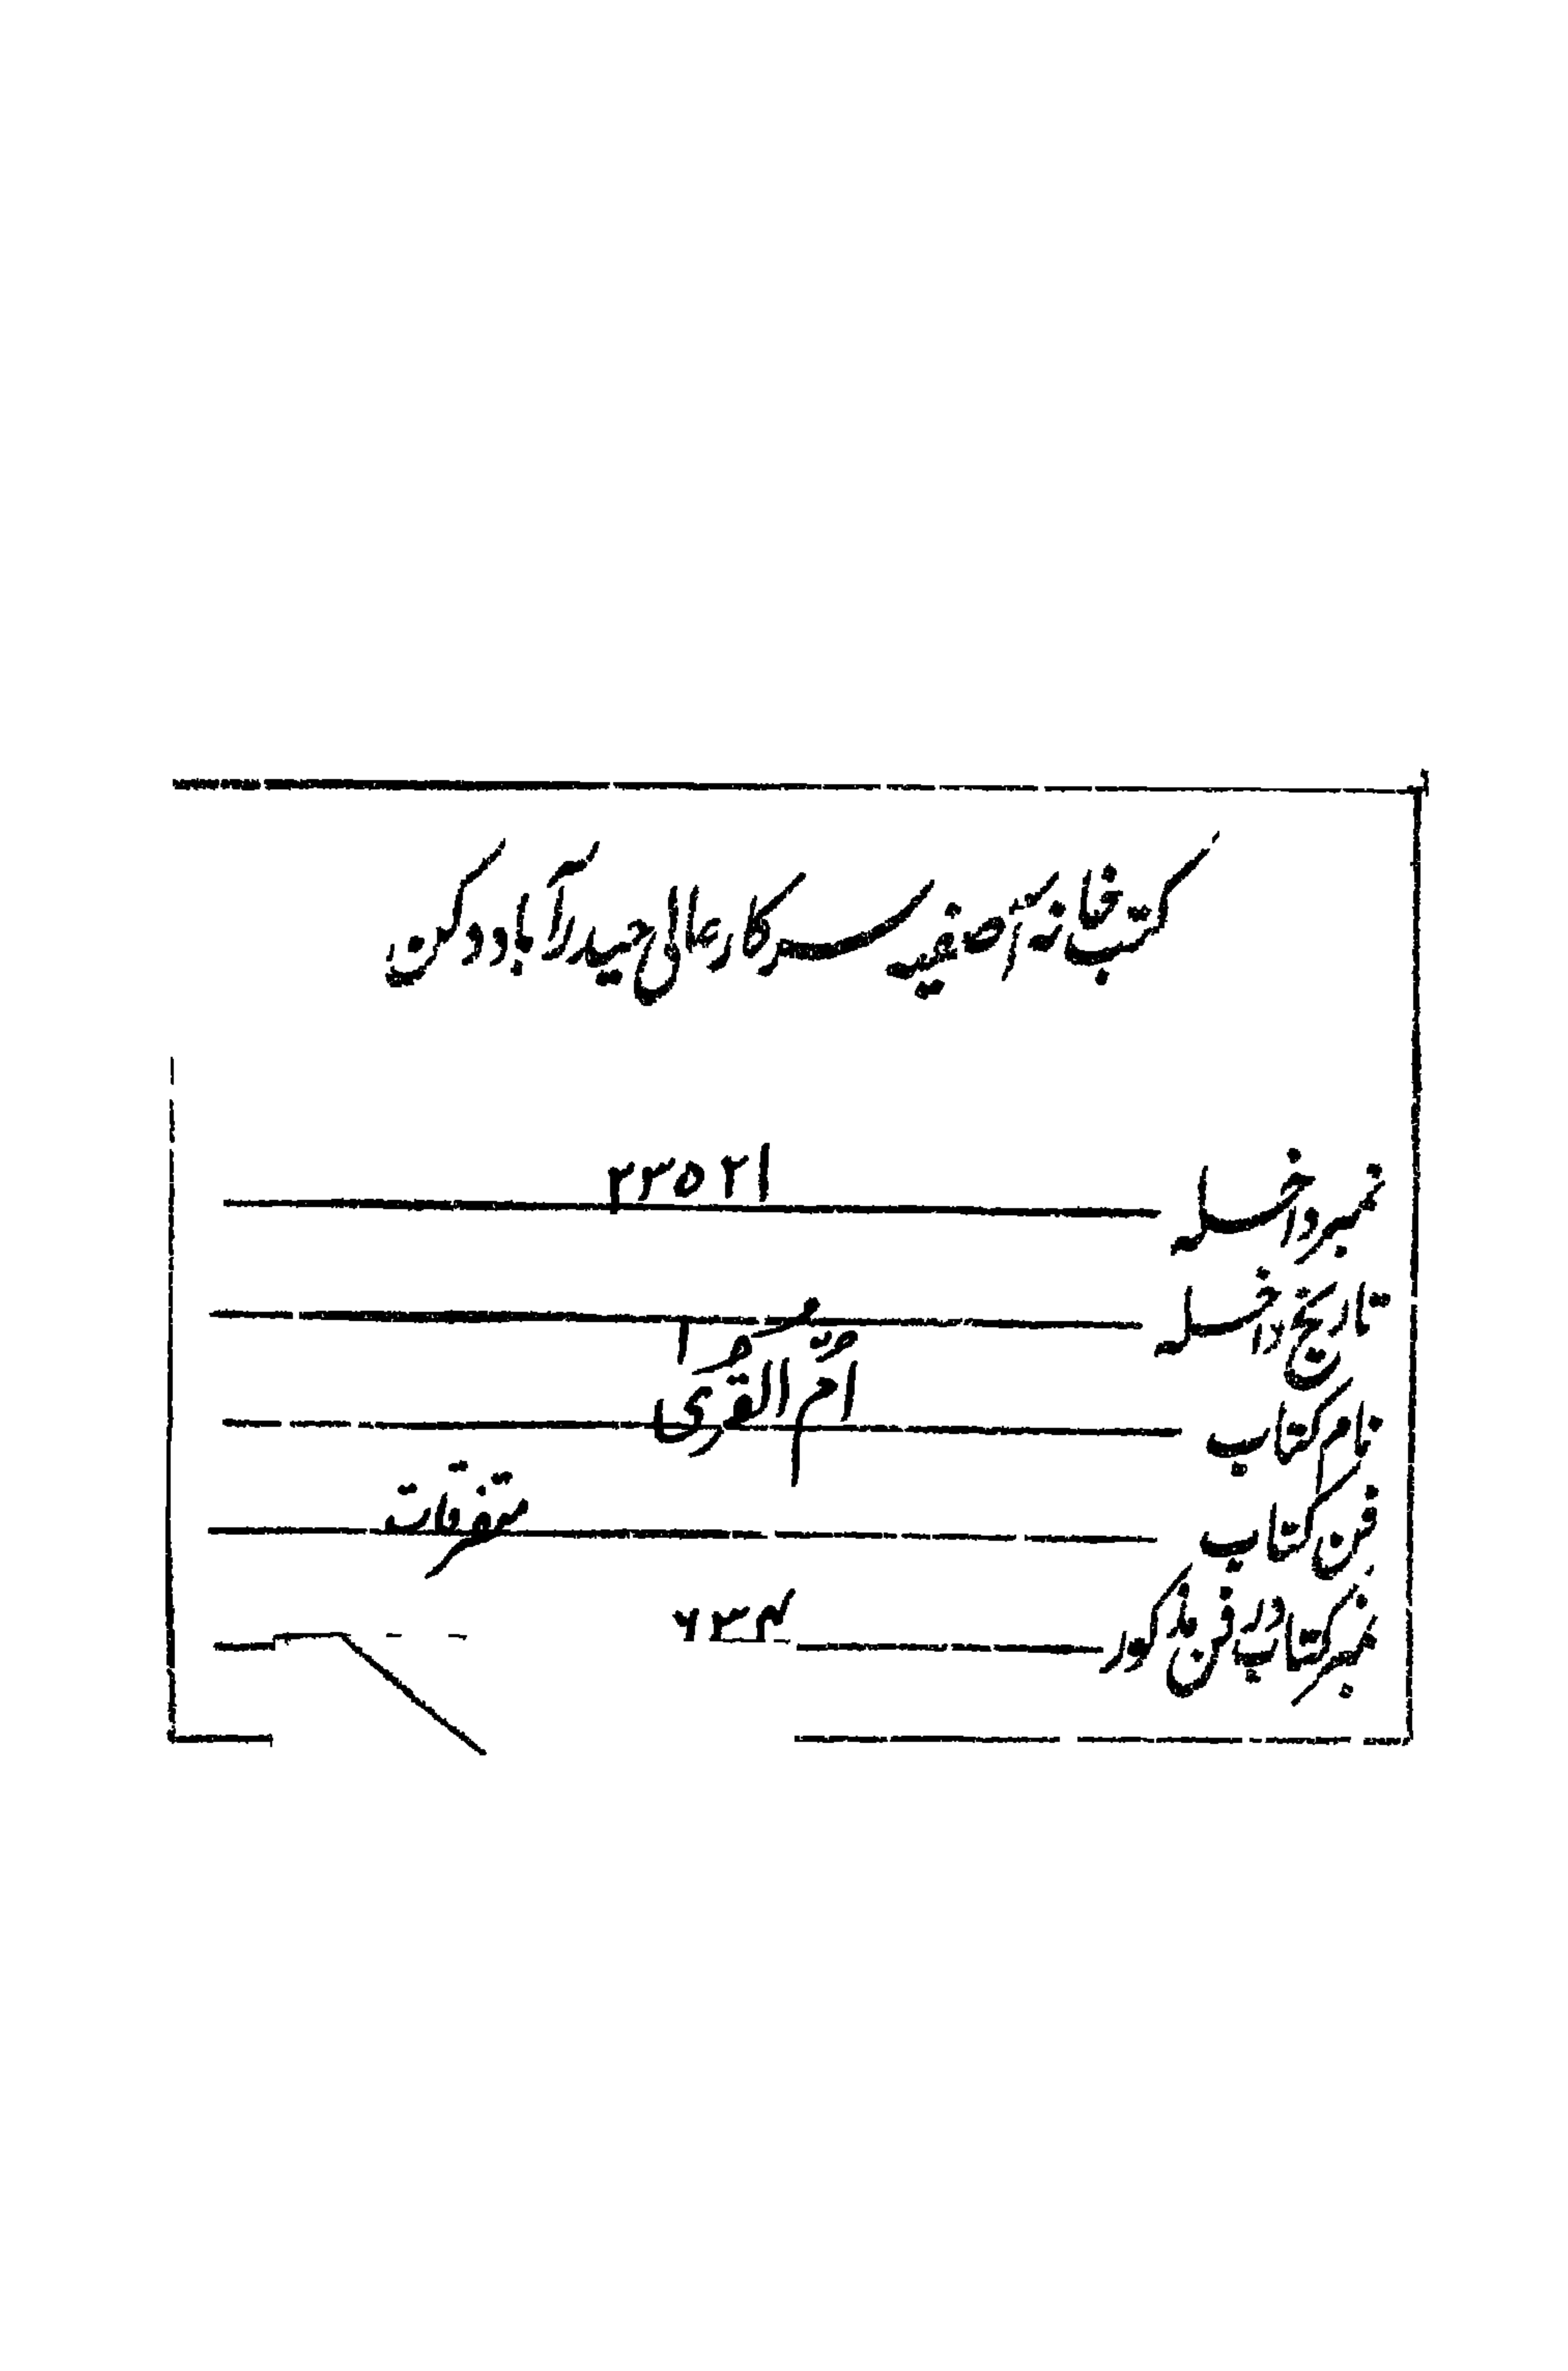 کتب خانہ آصفیہ سرکار عالی حیدرآباد دکن
نمبر داخلہ ۲۳۵۲۱
تاریخ داخلہ
نام کتاب اُمّ القُریٰ
فن کتاب متفرقات
نمبر کتاب در فن مذکور ۶۳۴